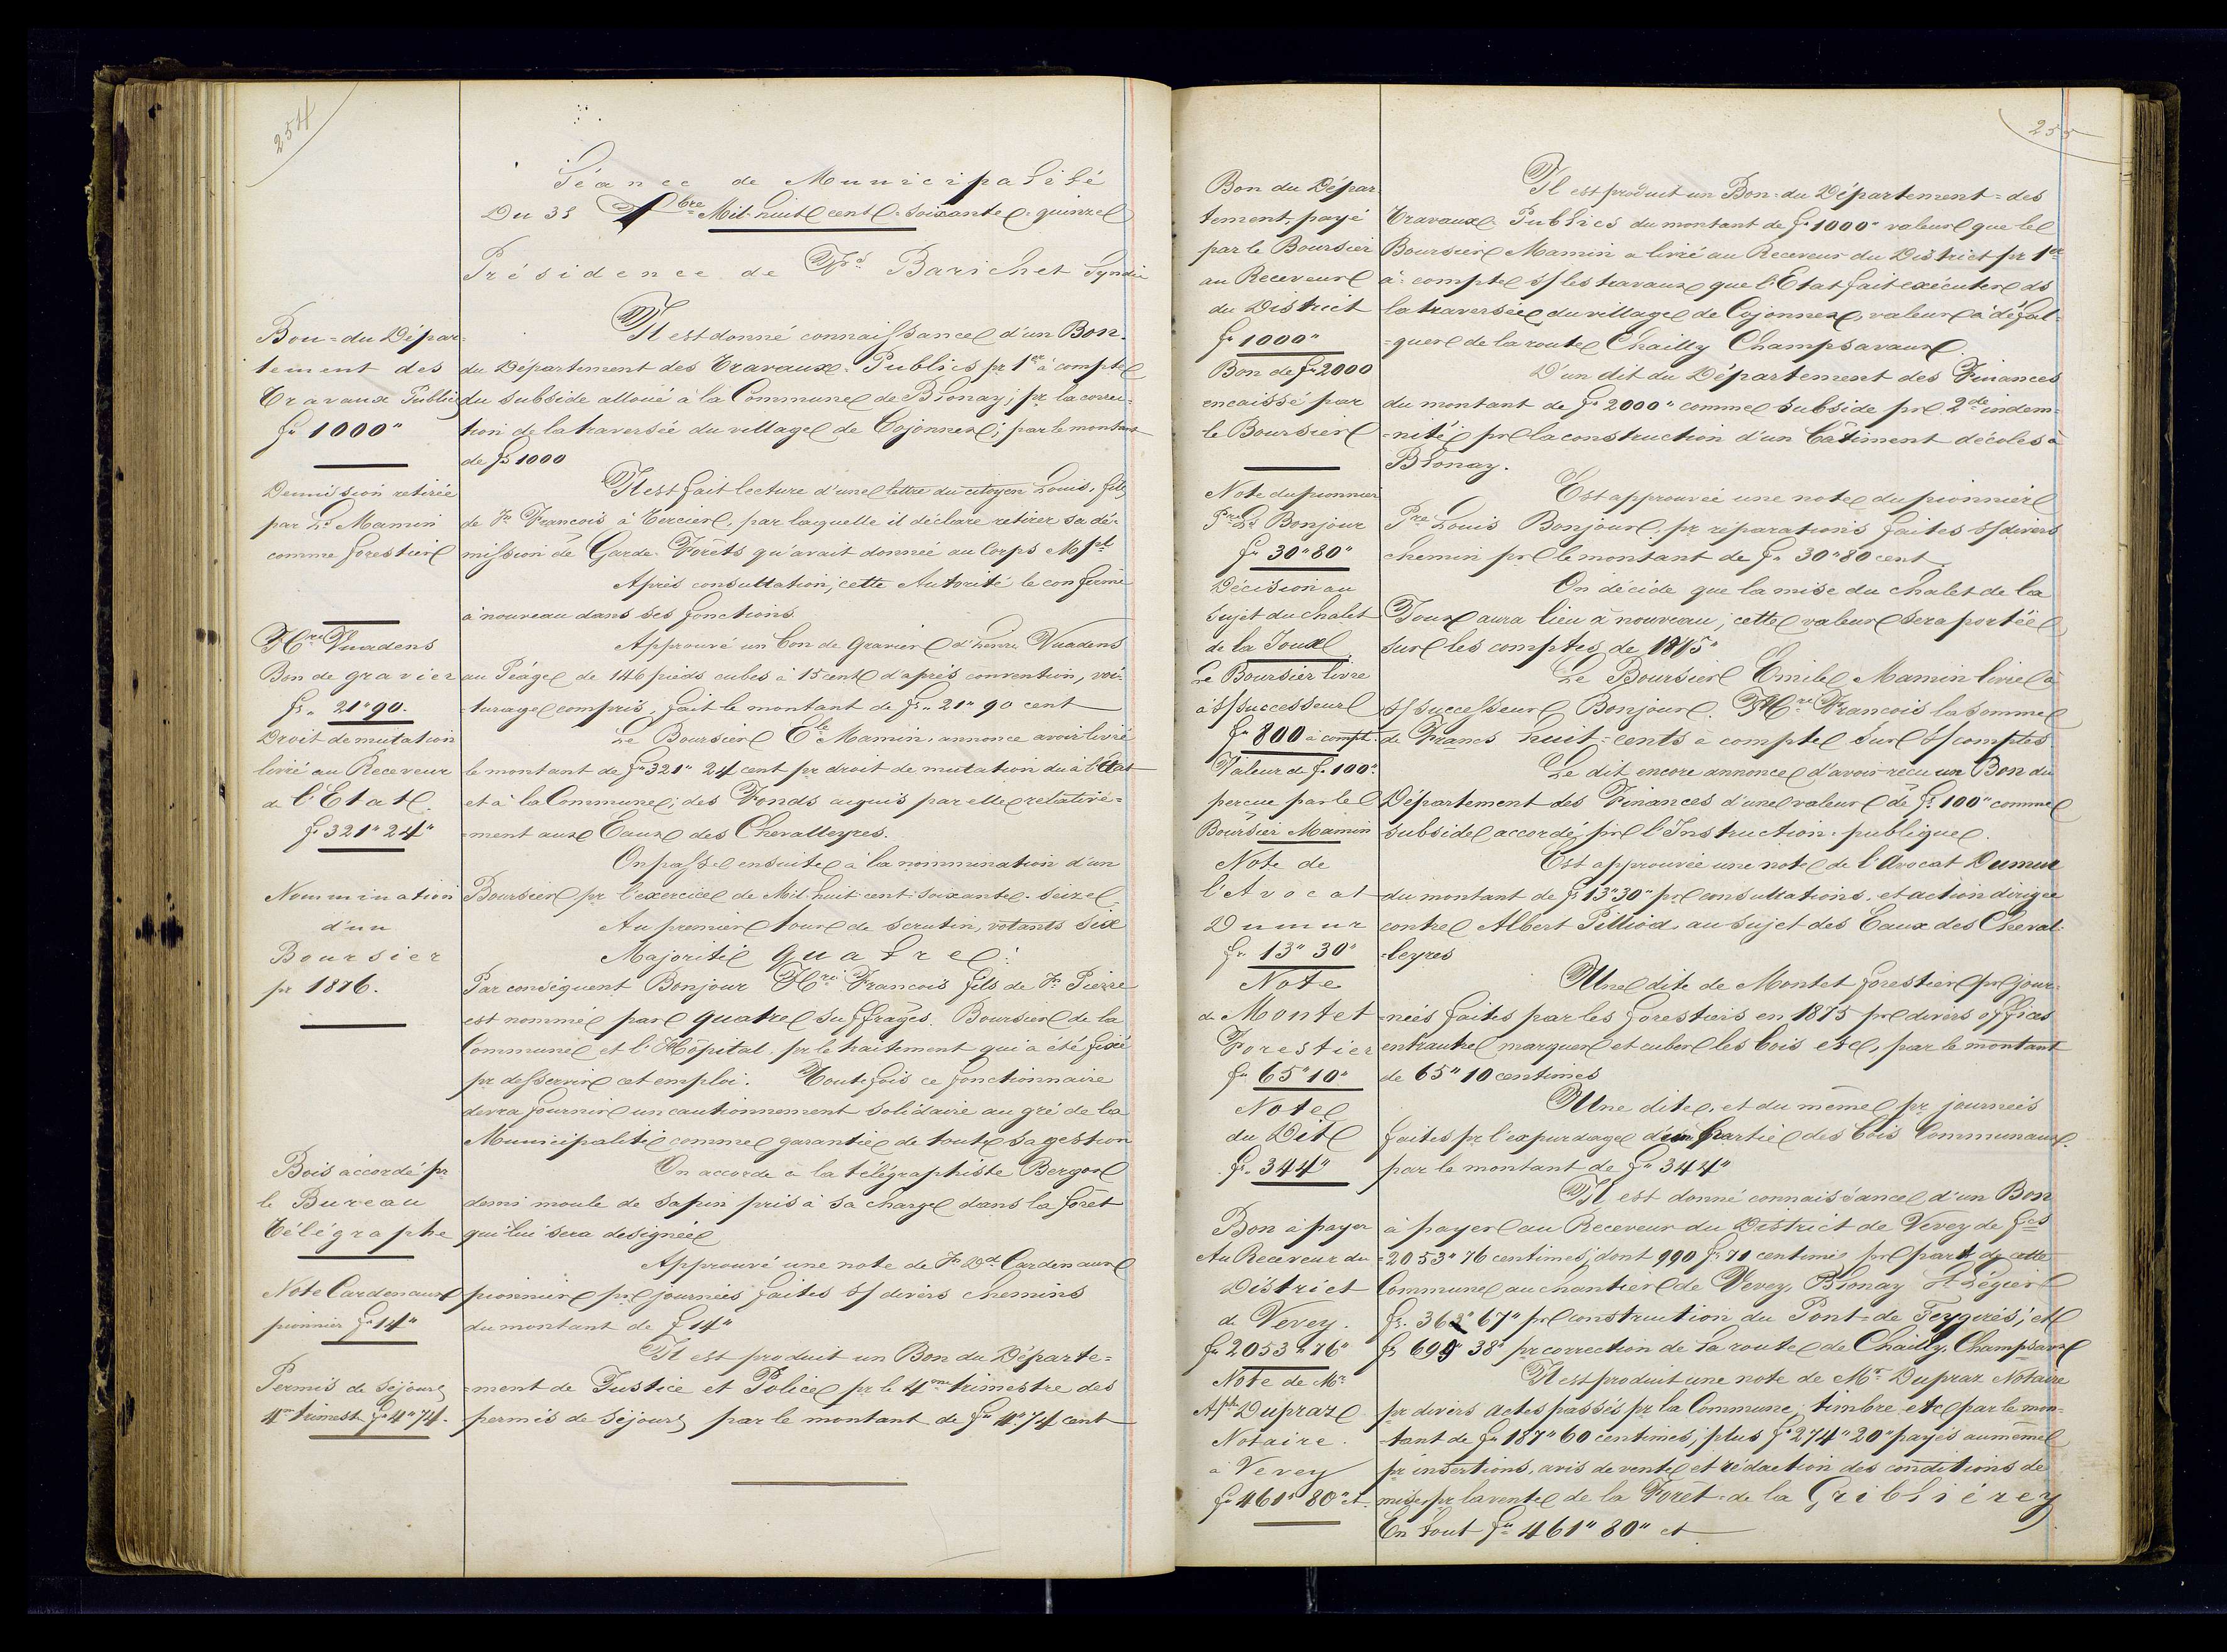 254
Séance de Municipalité
Du 31 Xbre Mil-huit cent-soixante-quinze
Présidence de Frs Barichet Syndic
Bon=du Dépar=
tement des
Travaux Publics
fr 1000"
Il est donné connaissance d'un Bon-
du Département des Travaux-Publics pr 1er à compte
du subside alloué à la Commune de Blonay; pr la correc-
tion de la traversée du village de Cojonnex; par le montant
de frs 1000
Démission retirée
par Ls Mamin
comme forestier
Il est fait lecture d'une lettre du citoyen Louis, fils
de Fs Francois à Tercier, par laquelle il déclare retirer sa dé-
mission de Garde-Forêts qu'avait donnée au Corps Mpal
Après consultation, cette Autorité le confirme
à nouveau dans ses fonctions.
Hri Vuadens
Bon de gravier
frs. 21"90.
Approuvé un bon de gravier d'Henri Vuadens
au Péage de 146 pieds cubes à 15 cent d'après convention, voi-
-turage compris, fait le montant de frs. 21"90 cent
Droit de mutation
livré au Receveur
de l'Etat.
fr 321"24"
Le Boursier Ele Mamin, annonce avoir livré
le montant de fr 321" 24 cent pr droit de mutation du à l'Etat
et à la Commune; des Fonds acquis par elle relative=
-ment aux Eaux des Chevalleyres.
Nommination
d'un
Boursier
pr 1876.
On passe ensuite à la nommination d'un
Boursier pr l'exercice de Mil-huit-cent-soixante-seize.
Au premier tour de scrutin, votants six
Majorité quatre:
Par conséquent Bonjour Hri Francois fils de Fs Pierre
est nommé par quatre suffrages. Boursier de la
Commune et l'Hôpital, pr le traitement qui a été fixé
pr desservir cet emploi. Toutefois ce fonctionnaire
devra fournir un cautionnement solidaire au gré de la
Municipalité comme garantie de toute sa gestion
Bois accordé pr
le Bureau
Télégraphe
On accorde à la télégraphiste Berger
demi moule de sapin pris à sa charge dans la forêt
qui lui sera designée
Note Cardenaux
pionnier fr 14"
Approuvé une note de Fs Dd Cardenaux
pionnier pr journées faites s/ divers chemins
du montant de f 14"
Permis de séjours
4me trimest. fr 4"74.
Il est produit un Bon du Départe=
=ment de Justice et Police pr le 4me trimestre des
permis de séjours par le montant de fr 4"74 cent
255
Bon du Dépar
tement payé
par le Boursier
au Receveur
du District
fr 1000"
Il est produit un Bon-du Département=des
Travaux Publics du montant de fr 1000" valeur que le
Boursier Mamin a livré au Receveur du District pr 1er
à-compte s/ les travaux que l'Etat fait exécuter ds
la traversée du village de Cojonnex, valeur à défal-
=quer de la route Chailly Champsavaux.
Bon de fr 2000
encaissé par
le Boursier
D'un dit du Département des Finances
du montant de fr 2000" comme subside pr 2de indem-
=nité pr la construction d'un bâtiment d'écoles à
Blonay.
Note du pionnier
Pre Ls Bonjour
fr 30"80"
Est approuvée une note du pionnier
Pre Louis Bonjour, pr réparations faites s/ divers
chemin pr le montant de fr 30"80 cent.
Décision au
sujet du chalet
de la Joux
On décide que la mise du chalet de la
Joux aura lieu à nouveau; cette valeur sera portée
sur les comptes de 1875"
Le Boursier livre
à s/ successeur
fr 800 à compt.
Le Boursier Emile Mamin livre à
s/ successeur Bonjour. Hri Francois la somme
de Francs huit=cents à compte sur s/ comptes
Valeur de f. 100"
percue par le
Boursier Mamin
Le dit encore annonce d'avoir recu un Bon du
Département des Finances d'une valeur de frs 100" comme
subside accordé pr l'Instruction-publique.
Note de
l'Avocat
Dumur
fr. 13"30"
Est approuvée une note de l'Avocat Dumur
du montant de frs 13"30" pr consultations, et action dirigée
contre Albert Pilliod au sujet des Eaux des Cheval-
-leyres
Note
de Montet
Forestier
fr 65"10"
Une dite de Montet forestier pr jour-
-nées faites par les forestiers en 1875 pr divers offices
entrautre marquer et cuber les bois etc, par le montant
de 65"10 centimes
Note
du Dit
fr. 344"
Une dite, et du même pr journées
faites pr l'expurdage d'une partie des bois Communaux.
par le montant de fr 344"
Bon à payer
Au Receveur du
District
de Vevey.
fr 2053"76"
Il est donné connaissance d'un Bon
à payer au Receveur du District de Vevey de frs
=2053"76 centimes, dont 990 frs 71 centimes pr part de cette
Commune au chantier de Vevey, Blonay St Légier
fr. 363"67" pr construction du Pont-de Feygires; et
frs 699"38" pr correction de la route de Chailly, Champsavx
Note de Mr
Aphe Dupraz
Notaire.
à Vevey
fr 461"80" ct.
Il est produit une note de Mr Dupraz Notaire
pr divers actes passés pr la Commune, timbre etc par le mon-
-tant de fr 187"60 centimes; plus fr 274"20" payés au même
pr insertions, avis de vente et rédaction des conditions de
mise pr la vente de la Forêt-de la Griblièrey
En tout fr 461"80" ct